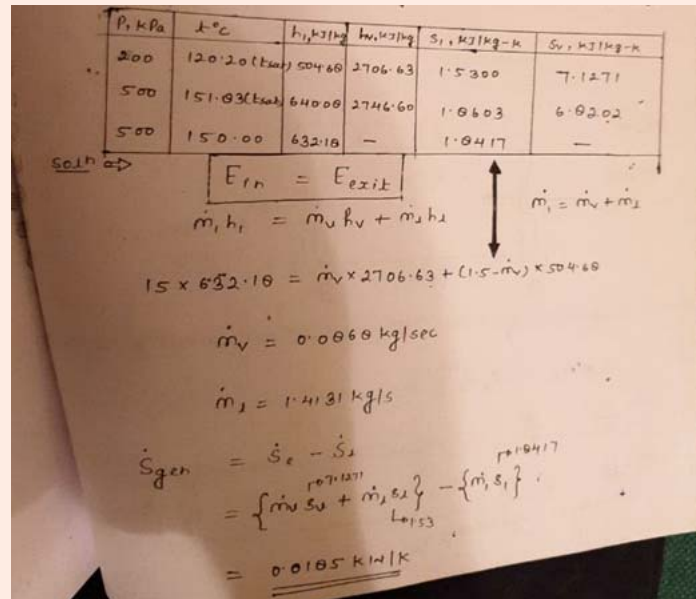 P, kPa t°C hl, kJ/kg hv, kJ/kg sl, kJ/kg-k sv, kJ/kg-k
200 120.20(tsat) 504.68 2706.63 1.5300 7.1271
500 151.83(tsat) 640.08 2746.60 1.8603 6.8202
500 150.00 632.18 — 1.8417 —
Soln ⇒
Ein = Eexit
ṁ1 h1 = ṁv hv + ṁl hl ṁ1 = ṁv + ṁl
15 × 632.18 = ṁv × 2706.63 + (1.5 - ṁv) × 504.68
ṁv = 0.0868 kg/sec
ṁl = 1.4131 kg/s
Ṡgen = Ṡe - Ṡi
→7.1271 →1.8417
= {ṁv sv + ṁl sl} - {ṁ1 s1}
↳1.53
= 0.0185 kW/k